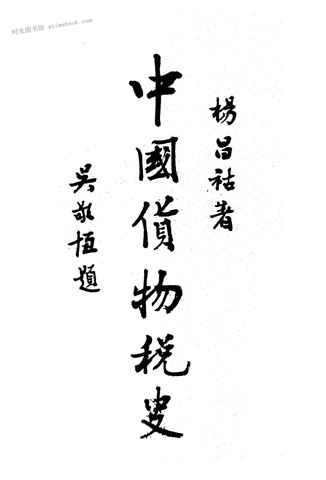 时光图书馆
楊昌祜著
中國貨物税史
吳敬恒題